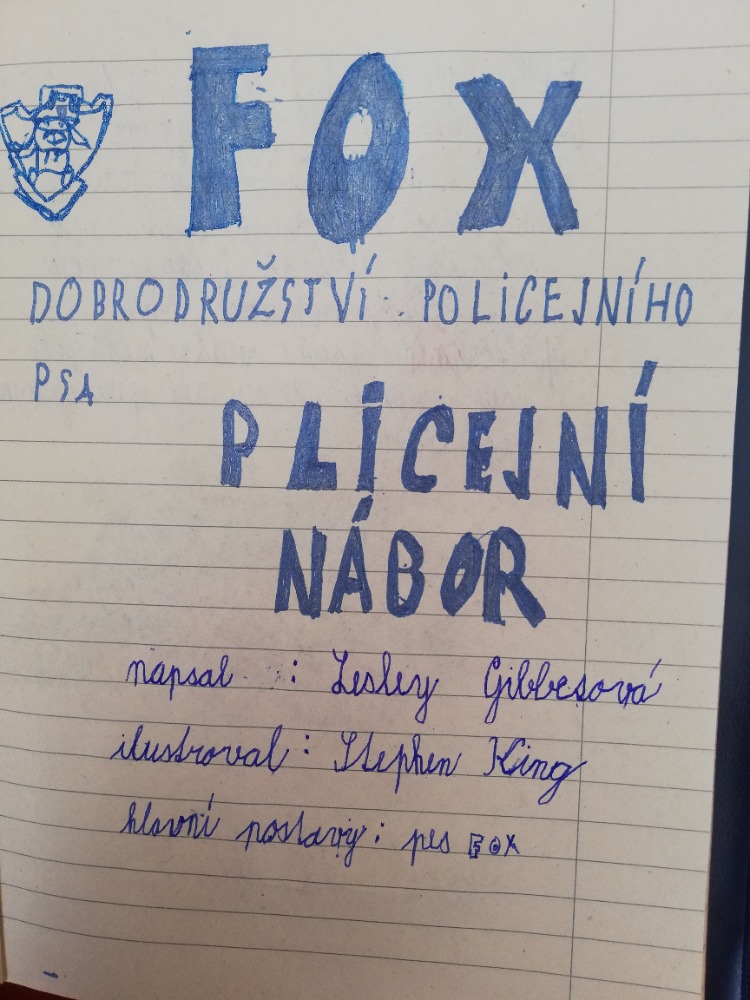 FOX
DOBRODRUŽSTVÍ POLICEJNÍHO
PSA
PLICEJNÍ
NÁBOR
napsal : Lesley Gibbesová
ilustroval : Stephen King
hlavní postavy : pes FOX